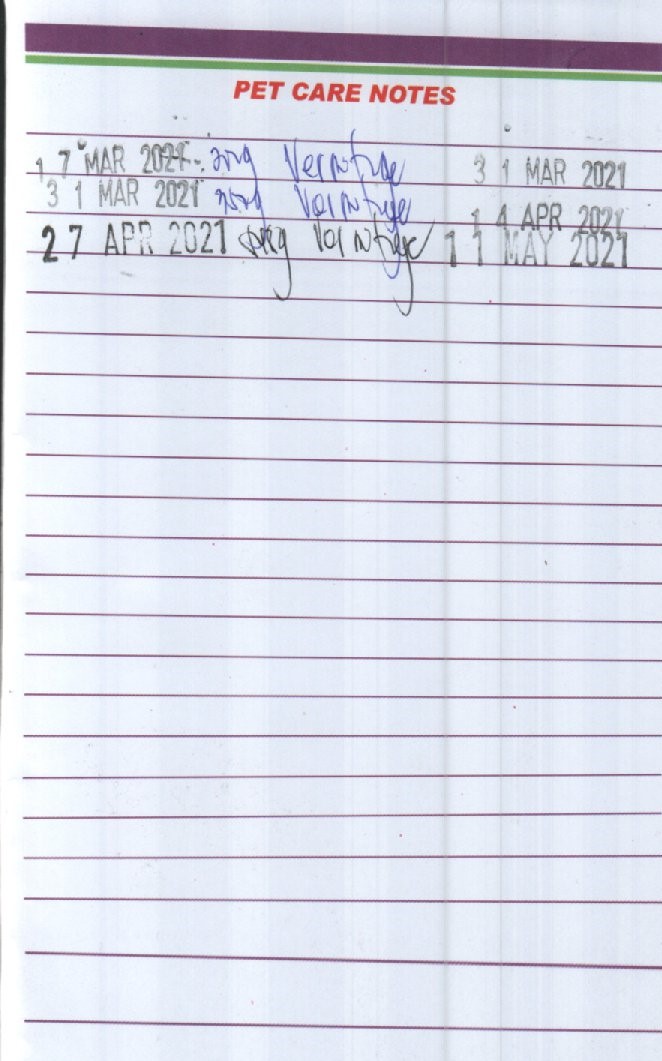 PET CARE NOTES
17 MAR 2021 Vermifuge 31 MAR 2021
31 MAR 2021 Vermifuge 14 APR 2021
27 APR 2021 Vermifuge 11 MAY 2021